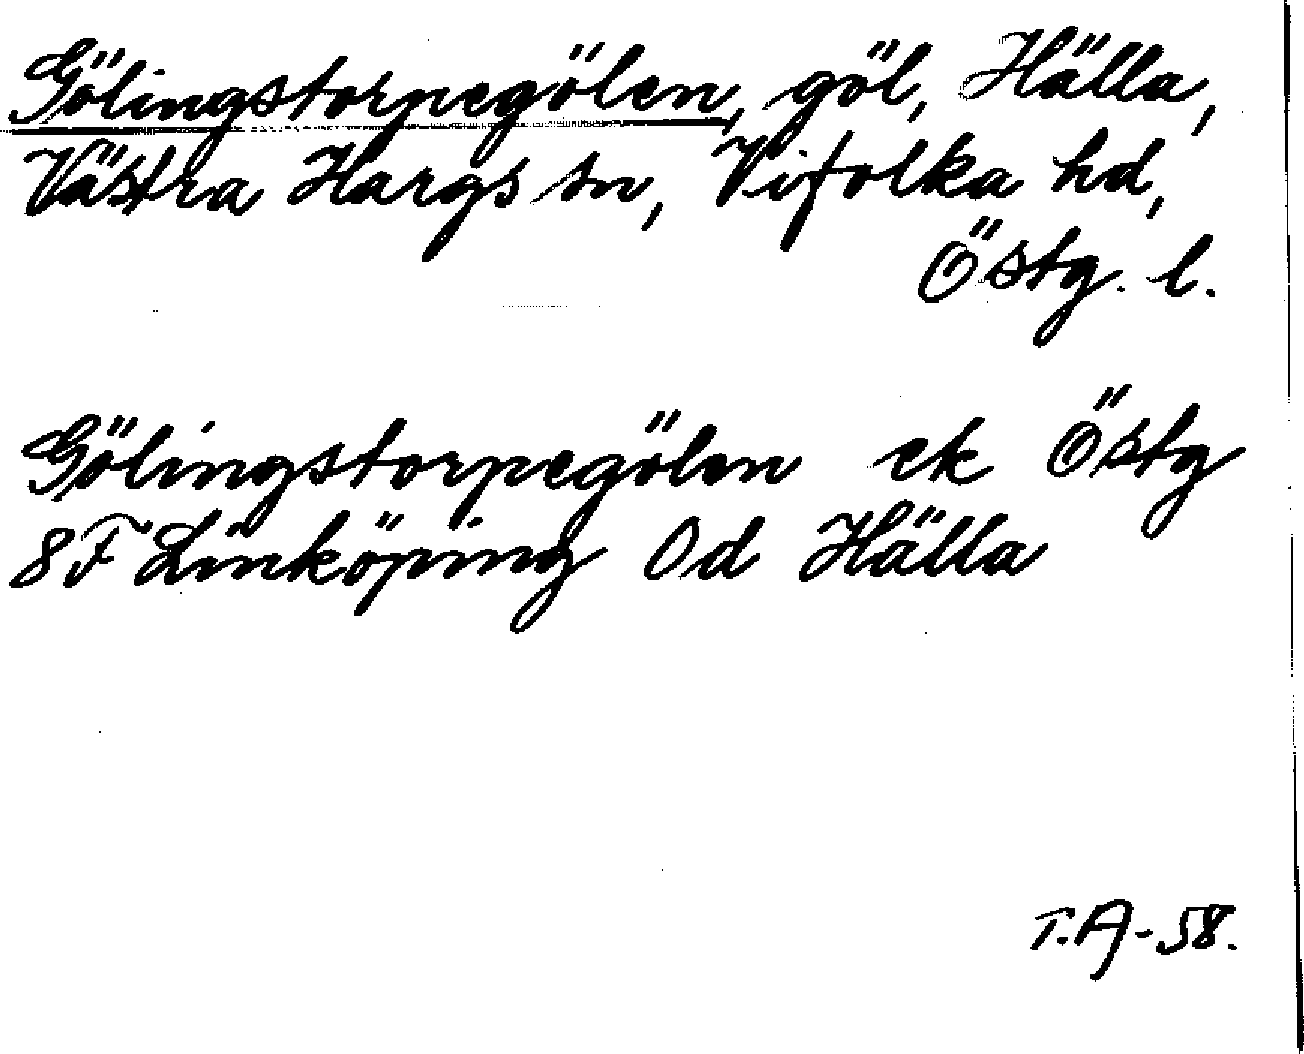 Gölingstorpegölen, göl, Hälla,
Västra Hargs sn, Vifolka hd,
Östg. l.
Gölingstorpegölen ek Östg
8F Linköping Od Hälla
T.A-58.